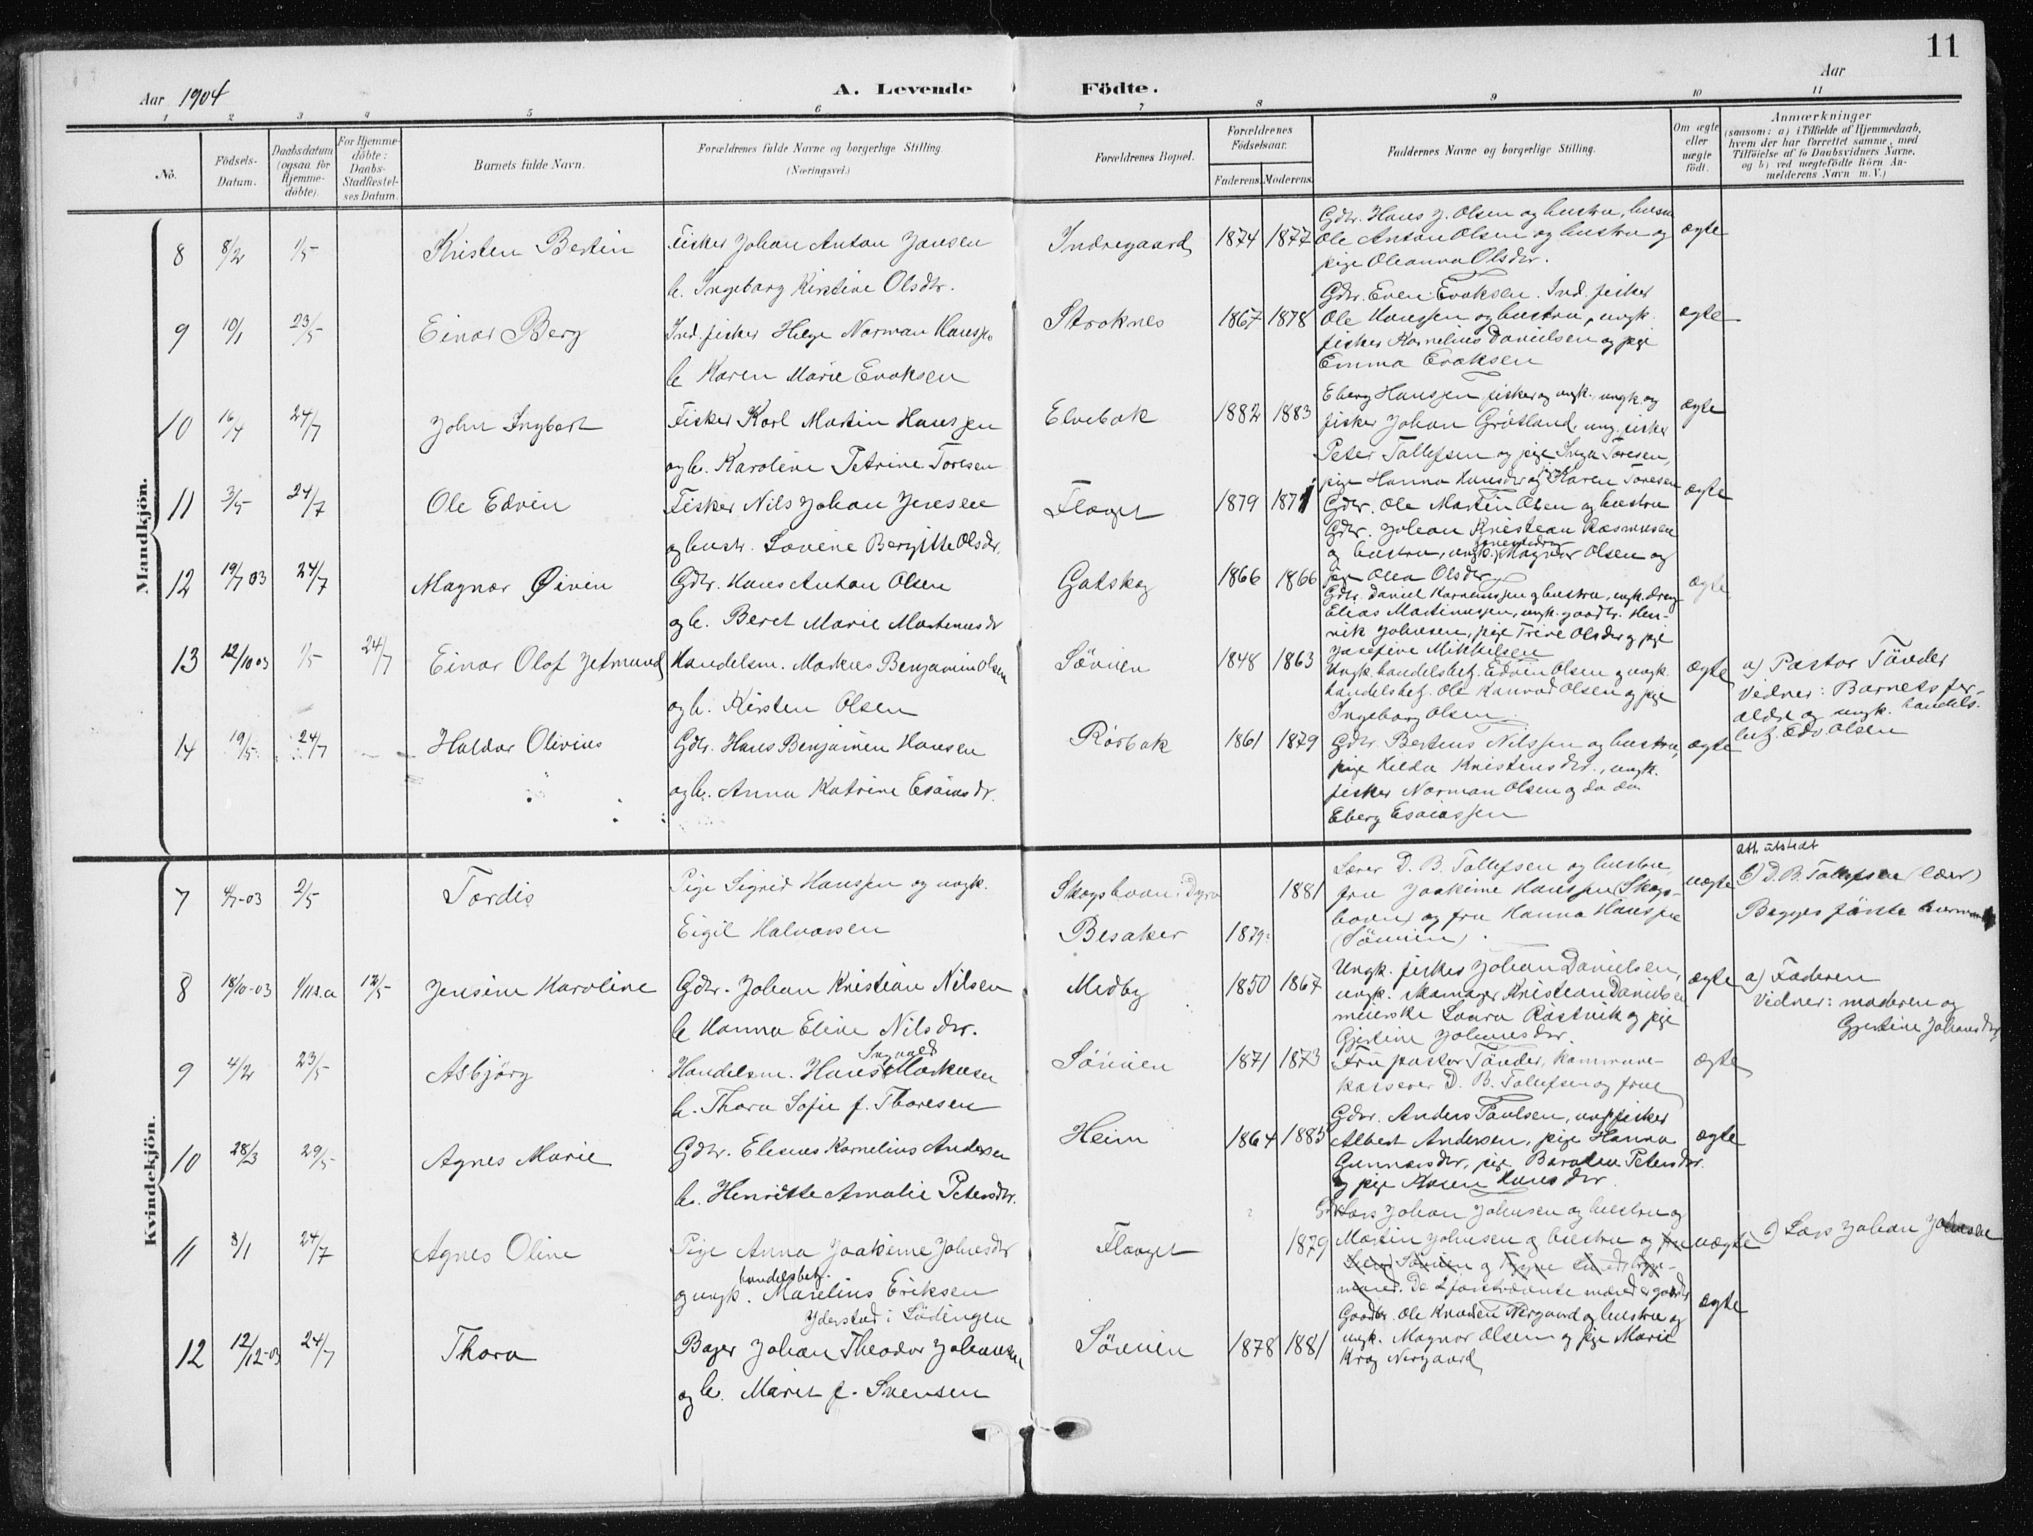 11
Aar 1904
A. Levende Födte.
Aar
1 2 3 4 5 6 7 8 9 10 11
No.
Födsels-Datum.
Daabsdatum (ogsaa for Hjemme-döbte).
For Hjemme-döbte: Daabs-Stadfæstel-ses Datum.
Barnets fulde Navn.
Forældrenes fulde Navne og borgerlige Stilling.
(Næringsvei.)
Forældrenes Bopæl.
Forældrenes Födselsaar.
Faderens. Moderens.
Faddernes Navne og borgerlige Stilling.
Om ægte eller uægte födt.
Anmærkninger
(saasom: a) i Tilfælde af Hjemmedaab,
hvem der har forrettet samme, med
Tilföielse af to Daabsvidners Navne,
og b) ved uægtefödte Börn An-
melderens Navn m. V.)
Mandkjön.
8 8/2 1/5 Kristen Bertin
Fisker Johan Anton Jansen
h. Ingeborg Kirstine Olsdtr.
Indregaard 1874 1877
Gdbr. Hans J. Olsen og hustru, husm
Ole Anton Olsen og hustru og
pige Oleanna Olsdtr.
ægte
9 10/1 23/5 Einar Berg
Ind. fisker Helge Norman Hanssen
h. Karen Marie Evaksen
Stroknes 1867 1878
Gdbr. Even Evaksen. Ind. fisker
Ole Hanssen og hustru, ungk.
fisker Kornelius Danielsen og pige
Emma Evaksen
ægte
10 16/4 24/7 John Ingbart
Fisker Karl Martin Hanssen
og h. Karoline Petrine Toresen
Elvebak 1882 1883
Eberg Hanssen fisker og ungk. ungk. og
fisker Johan Grøtland, ung. fisker
Peter Tollefsen og pige Inga Toresen,
pige Hanna Hansdtr og pige Karen Toresen
ægte
11 3/5 24/7 Ole Edvin
Fisker Nils Johan Jensen
og hustr. Lovine Bergitte Olsdr.
Flaaget 1879 1871
Gdbr. Ole Martin Olsen og hustru
Gdbr. Johan Kristian Rasmussen
og hustru, ungk. Magnor Olsen og
pige Olea Olsdtr
ægte
12 19/7 03 24/7 Magnar Øivin
Gdbr. Hans Anton Olsen
og h. Beret Marie Martinusdr
Gatskog 1866 1866
Gdbr. Daniel og hustru, ungk. dreng
Elias Martinussen, ungk. gaardbr. Hen-
rik Johnsen, pige Trine Olsdtr og pige
Josefine Mikkelsen
ægte
13 12/10 03 1/5 24/7 Einar Olaf Jetmund
Handelsm. Markus Benjamin Olsen
og h. Kirsten Olsen
Sövien 1848 1863
Ungk. handelsbetj. Edvin Olsen og ungk.
handelsbetj. Ole Konrad Olsen og pige
Ingeborg Olsen
ægte
a) Pastor Tönder
Vidner: Barnets for-
ældre og ungk. handels-
betj. Edv Olsen
14 19/5 24/7 Haldor Olivius
Gdbr. Hans Benjamin Hansen
og h. Anna Katrine Esaiasdr.
Rörbak 1861 1879
Gdbr. Bertens Nilssen og hustru,
pige Hilda Kristensdtr., ungk.
fisker Norman Olsen og do do
Eberg Esaiassen
ægte
Kvindekjön.
7 4/7-03 2/5 Tordis
Pige Sigrid Hanssen og ungk.
Eigil Halvorsen
Skogshavn i Dyrø
Besaker 1879 1881
Lærer D. B. Tollefsen og hustru,
fru Joakime Hanssen (Skogs-
havn) og fru Hanna Hanssen
(Sövien).
uægte
att. utstedt
b) D. B. Tollefsen (lærer)
Begges förste barn
8 18/10-03 12/5 Jensine Karoline
Gdbr. Johan Kristian Nilsen
h. Hanna Eline Nilsdtr.
Medby 1850 1867
Ungk. fisker Johan Danielsen,
ungk. Skomager Kristian Danielsen
meierske Laura Rostvik og pige
Gjertine Johansdtr.
ægte
a) Faderen
Vidner: moderen og
Gjertine Johansdtr
9 4/2 23/5 Asbjörg
Handelsm. Hans Ingvald Markusen
h. Thora Sofie f. Thoresen
Sövien 1871 1873
Fru pastor Tönder, kommune-
kasserer D. B. Tollefsen og frue
ægte
10 28/3 29/5 Agnes Marie
Gdbr. Elenus Kornelius Andersen
h. Henriette Amalie Petersdtr.
Heim 1864 1885
Gdbr. Anders Paulsen, ungk. fisker
Albert Andersen, pige Hanna
Gunnarsdtr, pige Petersdtr.
og pige Karen Hansdtr.
ægte
11 3/1 24/7 Agnes Oline
Pige Anna Joakime Johnsdtr
og ungk. handelsbetj. Marelius Eriksen
Yderstad i Lödingen
Flaaget 1879
Gdbr Lars Johan Johnsen og hustru og
Martin Johnsen og hustru og
De 2 forstnævnte mænd er gaardbr
uægte
b) Lars Johan Johnsen
12 12/12-03 24/7 Thora
Bager Johan Theodor Johansen
og h. Marit f. Svensen
Sövien 1878 1881
Gaardbr. Ole Knudsen Nergaard og hustru og
ungk. Magnor Olsen og pige Marie
Krog Nergaard
ægte